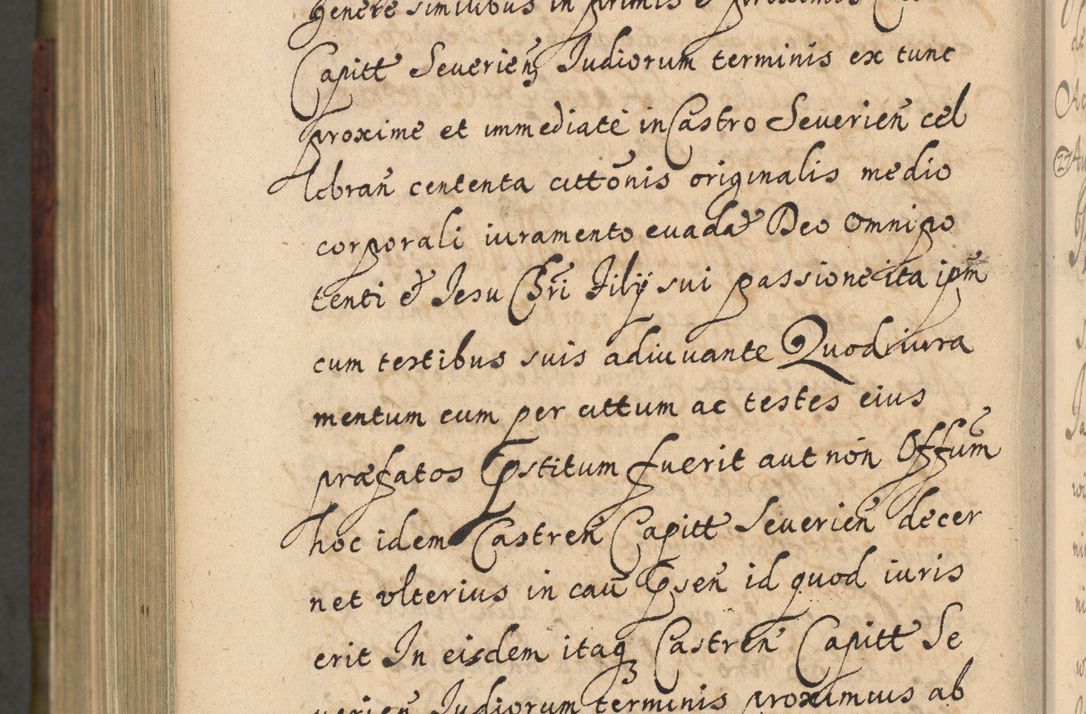 genere similibus in primis et proximis
Capitt Severien Iudiorum terminis ex tunc
proxime et immediate in Castro Severien cel
lebran contenta cittonis originalis medio
corporali iuramento evadat Deo omnipo
tenti et Jesu Chri Filÿ sui passione ita ipm
cum testibus suis adiuvante Quod iura
mentum eum per cittum ac testes eius
præfatos Pstitum fuerit aut non Offum
hoc idem Castren Capitt Severien decer
net ulterius in cau Psen id quod iuris
erit In eisdem itaq Castren Capitt Se
verien Iudiorum terminis proximius ab